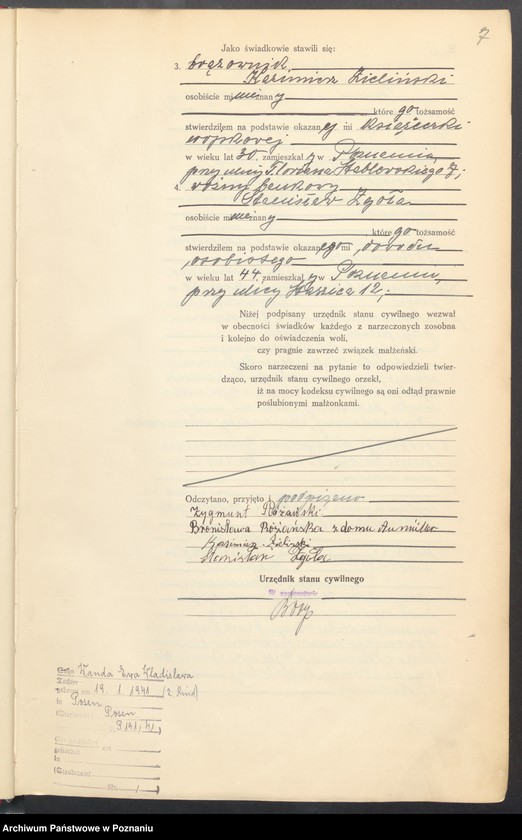 7
Jako świadkowie stawili się:
3. brązownik
Kazimierz Zieliński
osobiście nieznany
, które go tożsamość
stwierdziłem na podstawie okazanej mi książeczki
wojskowej
w wieku lat 30. zamieszkały w Poznaniu,
przy ulicy Floriana Stablewskiego 7,;
4.
Stanisław Zgoła
osobiście nieznany
, które go tożsamość
stwierdziłem na podstawie okazanego mi dowodu
osobistego
w wieku lat 44. zamieszkały w Poznaniu,
przy ulicy Staszica 12,;
Niżej podpisany urzędnik stanu cywilnego wezwał
w obecności świadków każdego z narzeczonych zosobna
i kolejno do oświadczenia woli,
czy pragnie zawrzeć związek małżeński.
Skoro narzeczeni na pytanie to odpowiedzieli twier-
dząco, urzędnik stanu cywilnego orzekł,
iż na mocy kodeksu cywilnego są oni odtąd prawnie
poślubionymi małżonkami.
Odczytano, przyjęto i podpisano
Zygmunt Różański
Bronisława Różańska z domu
Kazimierz Zieliński
Stanisław Zgoła
Urzędnik stanu cywilnego
W zastępstwie
Wanda Ewa Wladislawa
19. 1. 1941 (2. Kind)
in Posen
Posen
141/41
Archiwum Państwowe w Poznaniu